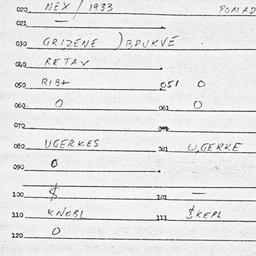 020 NEX / 1933 POMAD
021 —
030 GRIZENE ) BRUKVE
040 RETAV
050 RIBA 051 0
060 0 061 0
070
080 UGERKES 081 UGERKE
090 0
100 $ 101 —
110 KNOBL 111 $KERL
120 0